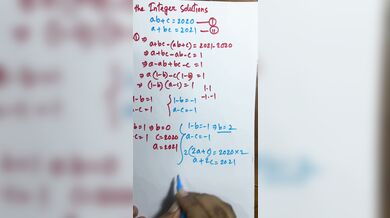 the Integer Solutions
ab+c = 2020 — I
a+bc = 2021 — II
① ⇒
a+bc-(ab+c) = 2021-2020
⇒ a+bc-ab-c = 1
⇒ a-ab+bc-c = 1
⇒ a(1-b)-c(1-b) = 1
⇒ (1-b)(a-c) = 1
1·1
-1·-1
-b=1
-c=1
1-b=-1
a-c=-1
b=1 ⇒ b=0
c=1
c=2020
a=2021
1-b=-1 ⇒ b=2
a-c=-1
2(2a+c) = 2020×2
a+2c = 2021